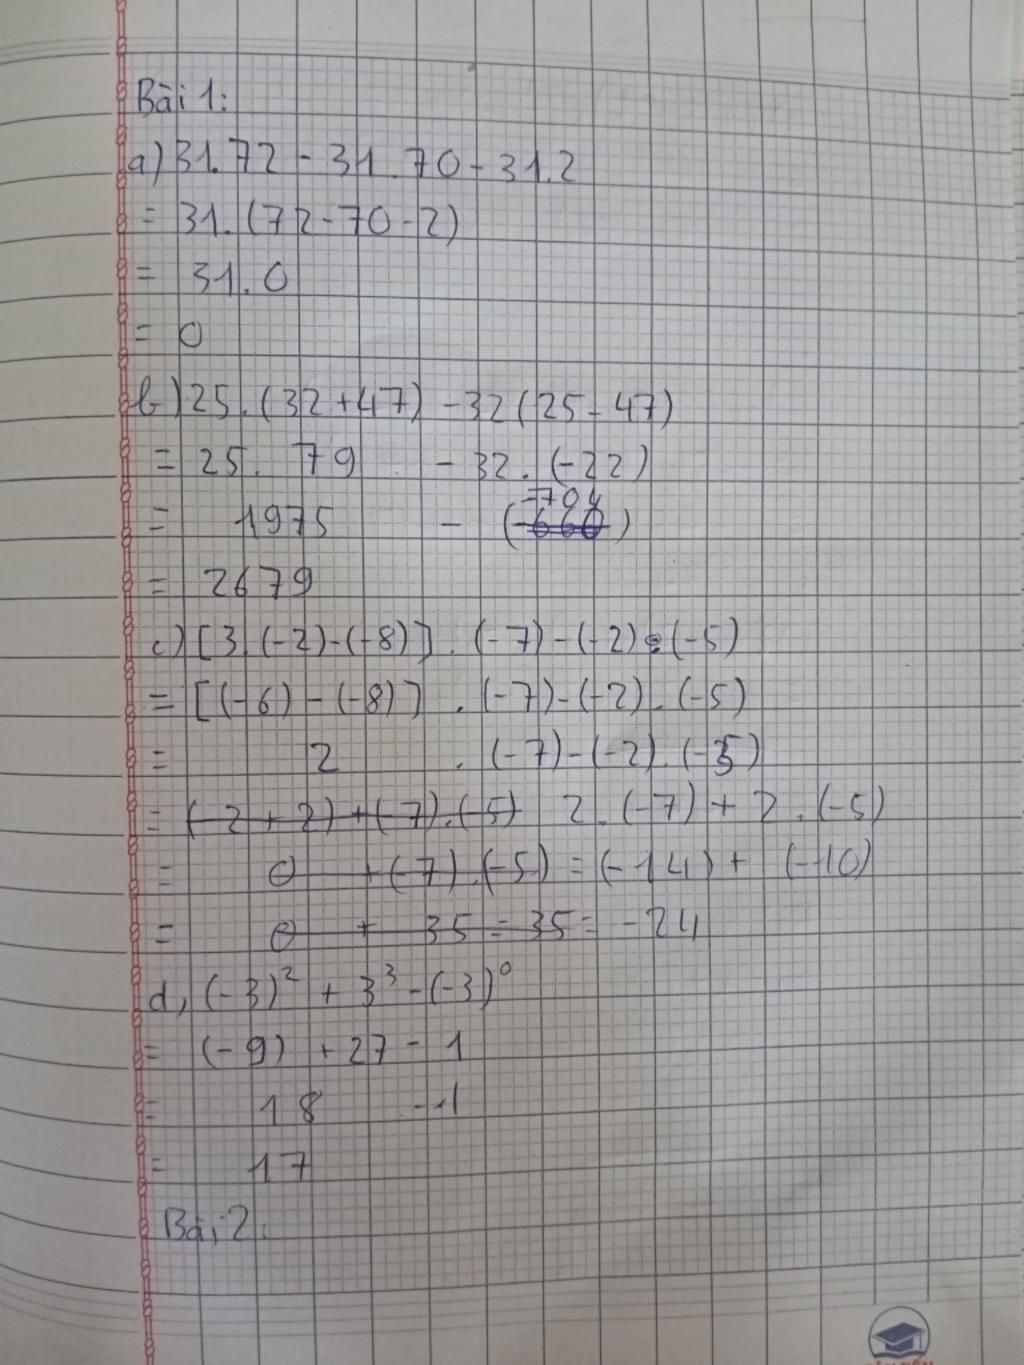 Bài 1:
a) 31.72 - 31.70 - 31.2
= 31.(72-70-2)
= 31.0
= 0
b) 25.(32+47) - 32(25-47)
= 25. 79 - 32.(-22)
-704
= 1975 - (-660)
= 2679
c) [3.(-2)-(-8)] . (-7)-(-2).(-5)
= [(-6)-(-8)] . (-7)-(-2).(-5)
= 2 . (-7)-(-2).(-5)
= (-2+2)+(-7).(-5) 2.(-7)+2.(-5)
= 0 +(-7).(-5) = (-14)+(-10)
= 0 + 35 = 35 = -24
d, (-3)² + 3³ - (-3)⁰
= (-9) + 27 - 1
= 18 - 1
= 17
Bài 2: